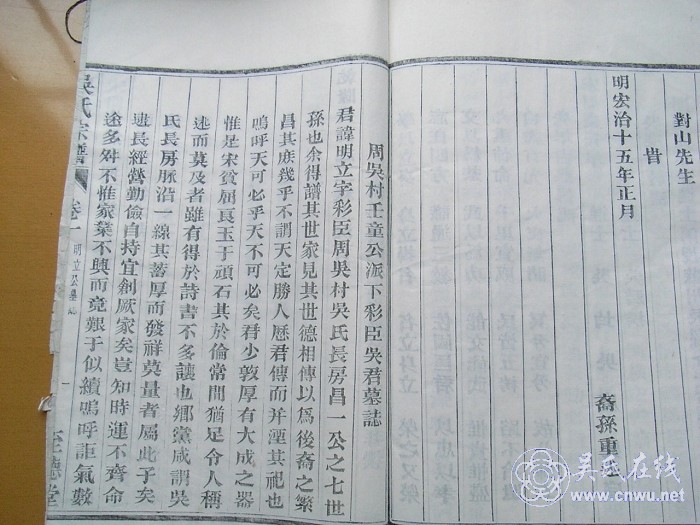 對山先生
旹
明宏治十五年正月
裔孫重
周吳村壬童公派下彩臣吳君墓誌
君諱明立字彩臣周吳村吳氏長房昌一公之七世
孫也余得譜其世家見其世德相傳以爲後裔之繁
昌其庶幾乎不謂天定勝人歷君傳而并湮其祀也
嗚呼天可必乎天不可必矣君少敦厚有大成之器
惟是宋貧屈良玉于頑石其於倫常間猶足令人稱
述而莫及者雖有得於詩書不多讓也鄉黨咸謂吳
氏長房脈沿一線其蓄厚而發祥莫量者屬此子矣
逮長經營勤儉自持宜創厥家矣豈知時運不齊命
途多舛不惟家業不興而竟艱于似續嗚呼詎氣數
吳氏宗譜
卷一
明立公墓誌
一
至德堂
吳氏在线
www.cnwu.net